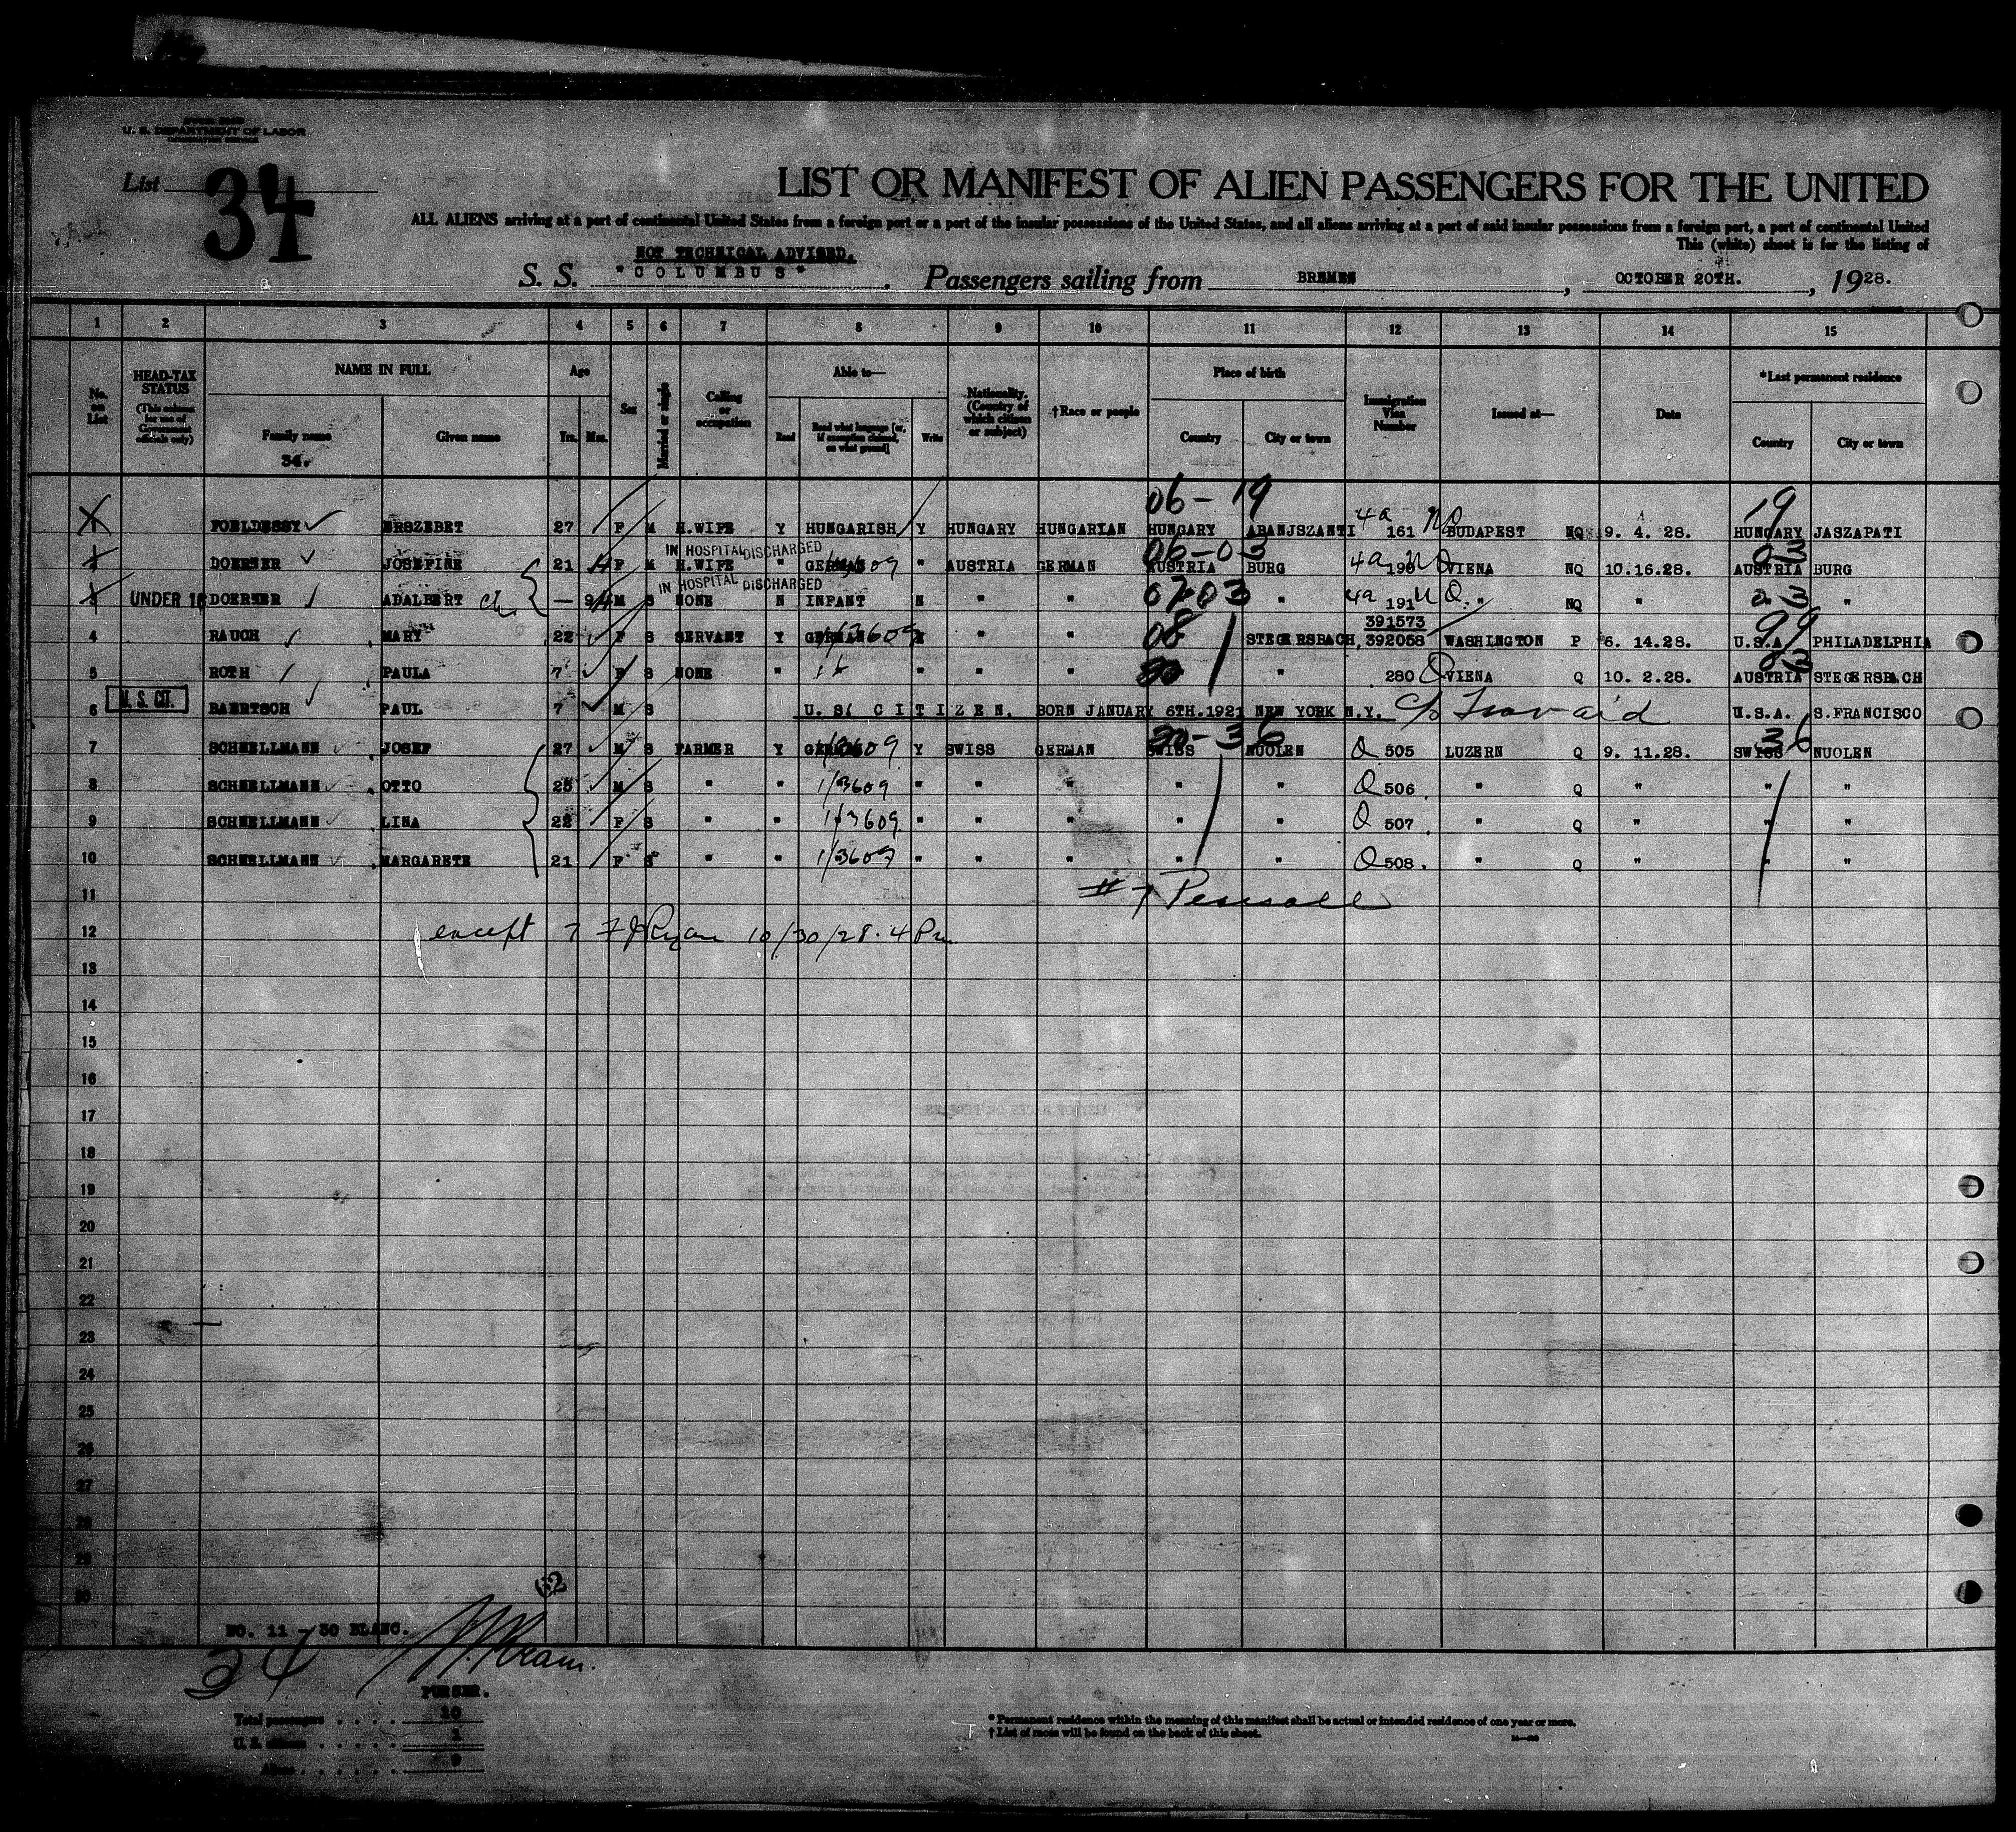 U. S. DEPARTMENT OF LABOR
List 34
LIST OR MANIFEST OF ALIEN PASSENGERS FOR THE UNITED
ALL ALIENS arriving at a port of continental United States from a foreign port or a port of the insular possessions of the United States, and all aliens arriving at a port of said insular possessions from a foreign port, a port of continental United
This (white) sheet is for the listing of
NOT TECHNICAL ADVISED.
S. S. "COLUMBUS". Passengers sailing from BREMEN, OCTOBER 20TH., 1928.
1 2 3 4 5 6 7 8 9 10 11 12 13 14 15
No. on List
HEAD-TAX STATUS (This column for use of Government officials only)
NAME IN FULL
Family name Given name
34.
Age
Yrs. Mos.
Sex
Married or single
Calling or occupation
Able to—
Read Read what language [or, if exemption claimed, on what ground] Write
Nationality. (Country of which citizen or subject)
†Race or people
Place of birth
Country City or town
Immigration Visa Number
Issued at—
Date
*Last permanent residence
Country City or town
06-19 19
FOELDESSY ERSZEBET 27 F M H.WIFE Y HUNGARISH Y HUNGARY HUNGARIAN HUNGARY ABANJSZANTI 4a 161 NQ BUDAPEST NQ 9. 4. 28. HUNGARY JASZAPATI
IN HOSPITAL DISCHARGED 06-03 03
DOERNER JOSEFINE 21 F M H.WIFE " GERMAN " AUSTRIA GERMAN AUSTRIA BURG 4a 190 NQ VIENA NQ 10.16.28. AUSTRIA BURG
IN HOSPITAL DISCHARGED
UNDER 16 DOERNER ADALBERT — 9 M S NONE N INFANT N " " " 4a 191 NQ " NQ " "
391573 99
4 RAUCH MARY 22 F S SERVANT Y GERMAN " " 08 STEGERSBACH, 392058 WASHINGTON P 6. 14.28. U.S.A. PHILADELPHIA
5 ROTH PAULA 7 F S NONE " " " " " 280 Q VIENA Q 10. 2.28. AUSTRIA STEGERSBACH
U. S. CIT.
6 BAERTSCH PAUL 7 M S U.S. CITIZEN, BORN JANUARY 6TH.1921 NEW YORK N.Y. U.S.A. S.FRANCISCO
7 SCHNELLMANN JOSEF 27 M S FARMER Y GERMAN Y SWISS GERMAN SWISS NUOLEN Q 505 LUZERN Q 9. 11.28. SWISS NUOLEN
8 SCHNELLMANN OTTO 25 M S " " 1/3609 " " " " " Q 506 " Q " " "
9 SCHNELLMANN LINA 22 F S " " 1/3609 " " " " " Q 507 " Q " " "
10 SCHNELLMANN MARGARETE 21 F S " " 1/3609 " " " " " Q 508. " Q " " "
11
12 except 7 F J Ryan 10/30/28. 4 Pm
13
14
15
16
17
18
19
20
21
22
23
24
25
26
27
28
29
30
NO. 11 - 30 BLANC.
34
PURSER.
Total passengers . . . . 10
U. S. citizens . . . . . 1
Aliens . . . . . . 9
* Permanent residence within the meaning of this manifest shall be actual or intended residence of one year or more.
† List of races will be found on the back of this sheet.